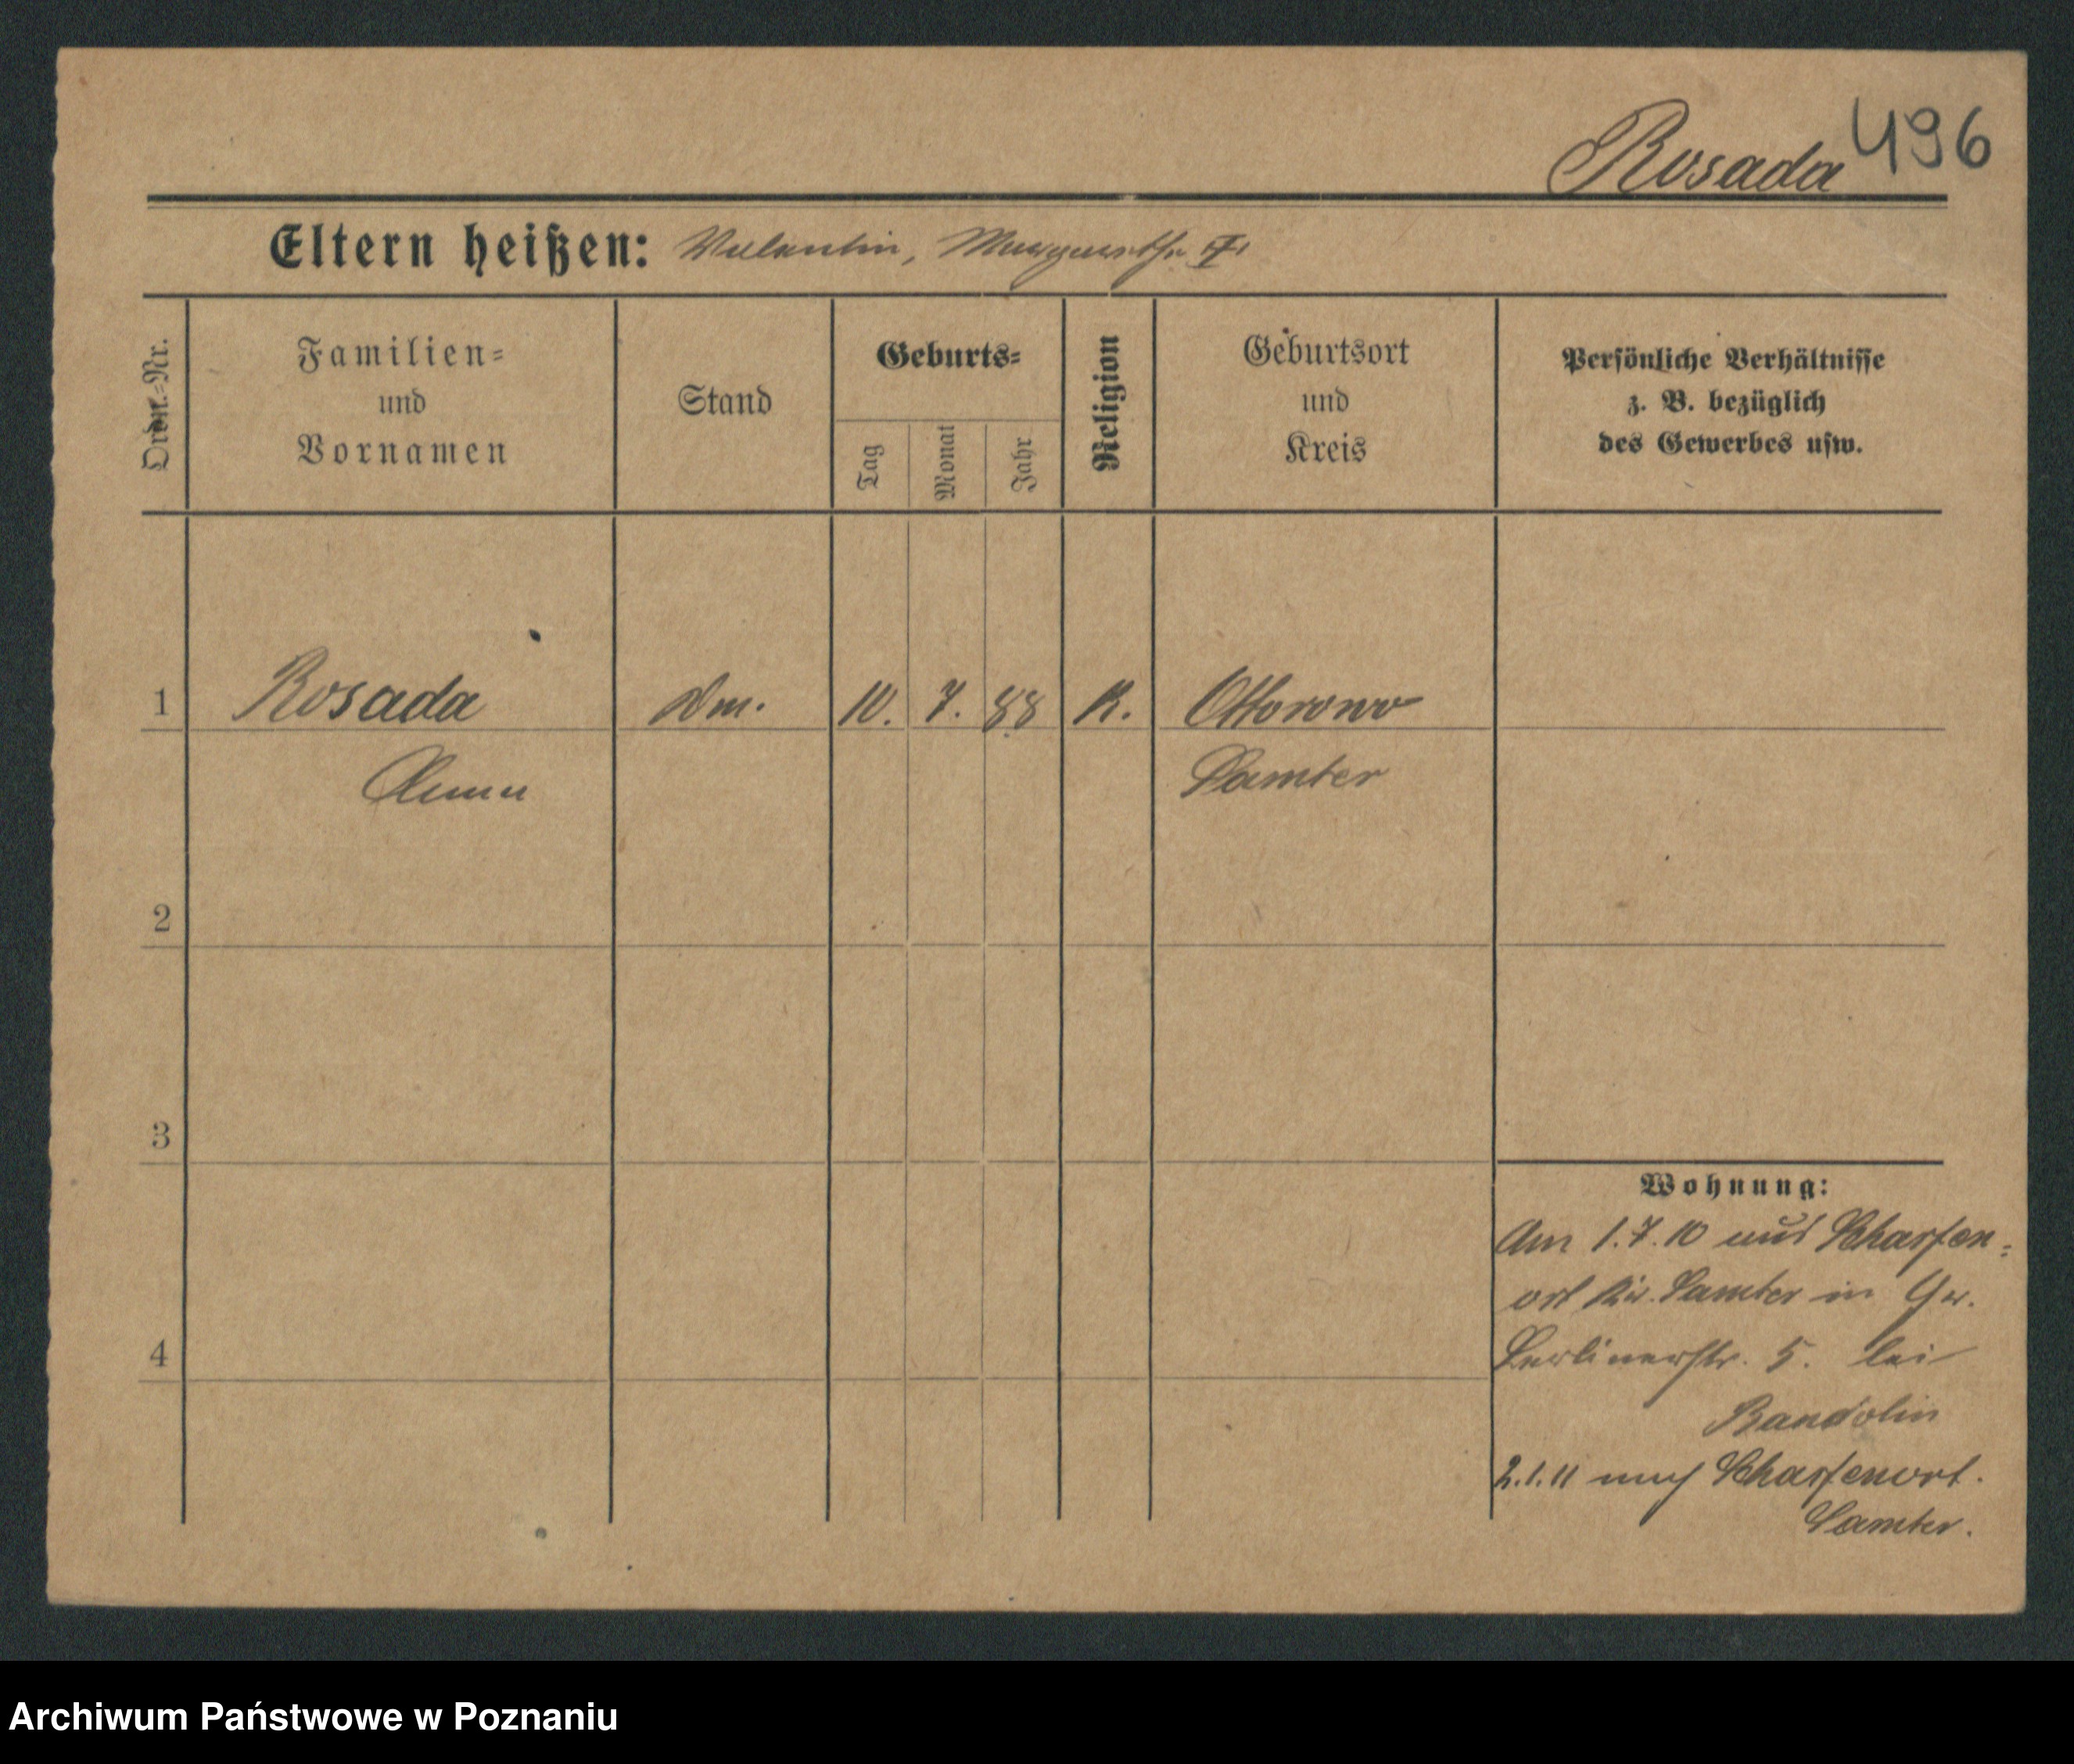 Rosada 496
Eltern heißen: Valentin, Margarethe
Ordn.-Nr.
Familien=
und
Vornamen
Stand
Geburts=
Tag
Monat
Jahr
Religion
Geburtsort
und
Kreis
Persönliche Verhältnisse
z. B. bezüglich
des Gewerbes usw.
1 Rosada Dm. 10. 7. 88 K. Ottorowo
Anna Samter
2
3
4
Wohnung:
Am 1.7.10 aus Scharfen=
ort Kr. Samter in Gr.
Berlinerstr. 5. bei
Bandolin
2.1.11 nach Scharfenort.
Samter.
Archiwum Państwowe w Poznaniu